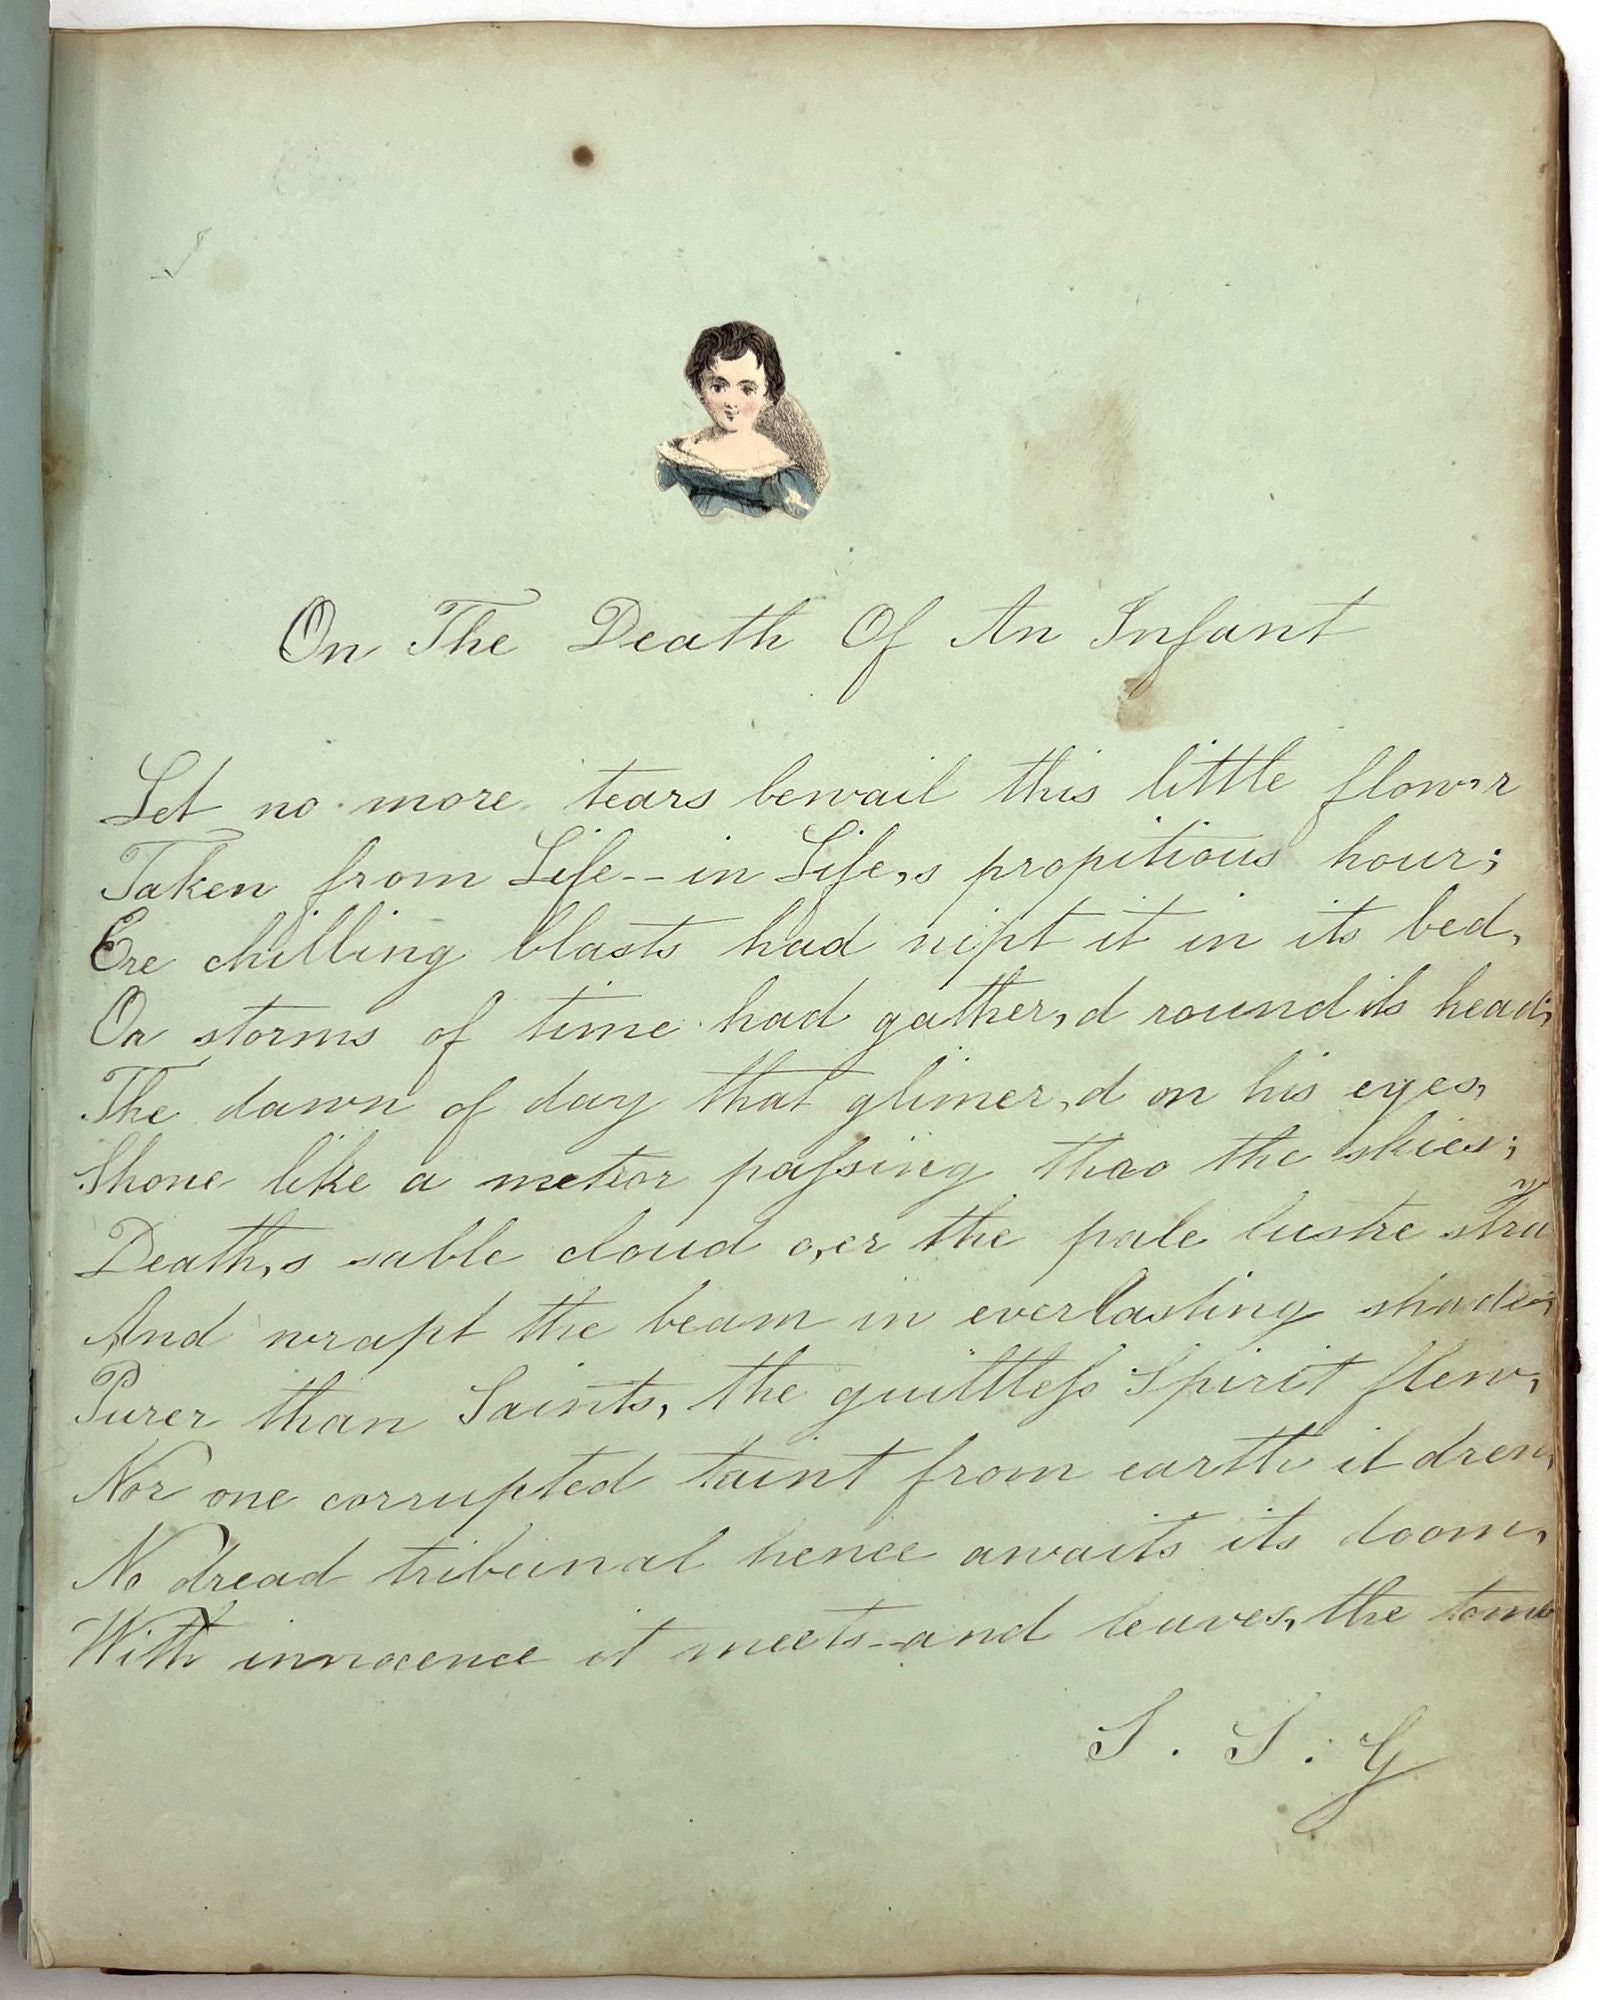 On The Death Of An Infant
Let no more tears bewail this little flower
Taken from Life--in Life,s propitious hour;
Ere chilling blasts had nipt it in its bed,
Or storms of time had gather,d round its head;
The dawn of day that glimer,d on his eyes,
Shone like a meteor passing thro the skies;
Death,s sable cloud o,er the pale lustre stray
And wrapt the beam in everlasting shade;
Purer than Saints, the guiltless Spirit flew,
Nor one corrupted taint from earth it drew,
No dread tribunal hence awaits its doom,
With innocence it meets--and leaves, the tomb
S. S. G